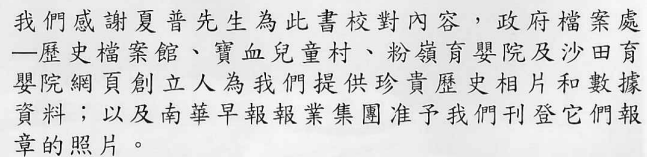 我們感謝夏普先生為此書校對內容，政府檔案處
—歷史檔案館、寶血兒童村、粉嶺育嬰院及沙田育
嬰院網頁創立人為我們提供珍貴歷史相片和數據
資料；以及南華早報報業集團准予我們刊登它們報
章的照片。